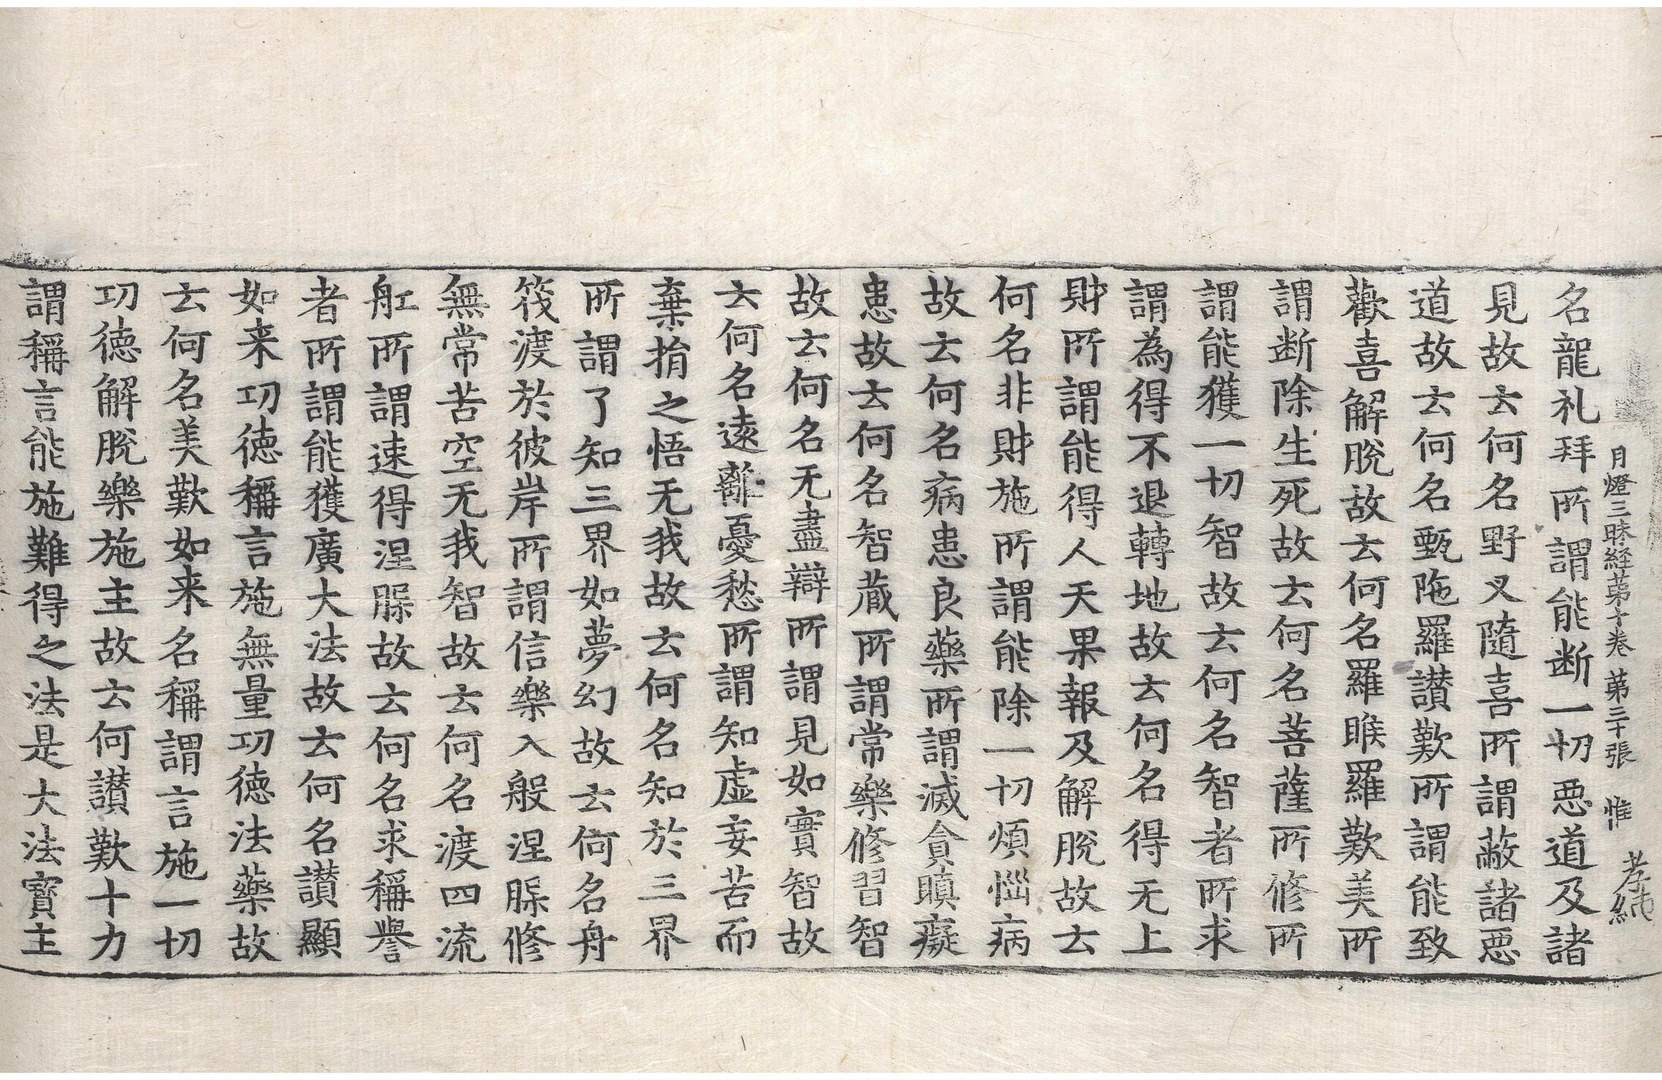 月燈三昧経苐十卷 苐三十張 惟 孝組
名龍礼拜所謂能断一切惡道及諸
見故云何名野叉隨喜所謂蔽諸惡
道故云何名甄陁羅讃歎所謂能致
歡喜解脫故云何名羅睺羅歎美所
謂断除生死故云何名菩薩所修所
謂能獲一切智故云何名智者所求
謂為得不退轉地故云何名得无上
財所謂能得人天果報及解脫故云
何名非財施所謂能除一切煩惱病
故云何名病患良藥所謂滅貪瞋癡
患故云何名智藏所謂常樂修習智
故云何名无盡辯所謂見如實智故
云何名遠離憂愁所謂知虛妄苦而
棄捎之悟无我故云何名知於三界
所謂了知三界如夢幻故云何名舟
筏渡於彼岸所謂信樂入般涅槃修
無常苦空无我智故云何名渡四流
舡所謂速得涅槃故云何名求稱譽
者所謂能獲廣大法故云何名讃顯
如来功德稱言施無量功德法藥故
云何名美歎如来名稱謂言施一切
功德解脫樂施主故云何讃歎十力
謂稱言能施難得之法是大法寶主